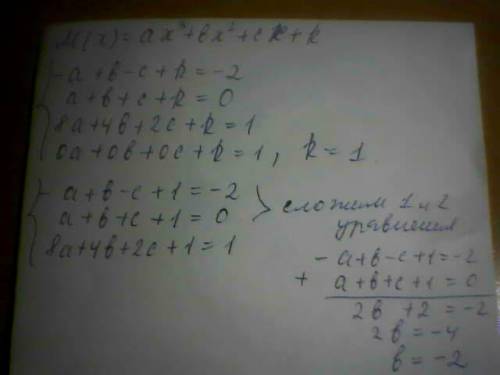 M(x)=ax³+bx²+cx+k
-a+b-c+k=-2
a+b+c+k=0
8a+4b+2c+k=1
0a+0b+0c+k=1, k=1
-a+b-c+1=-2
a+b+c+1=0
8a+4b+2c+1=1
сложим 1 и 2
уравнения
-a+b-c+1=-2
+ a+b+c+1=0
2b +2=-2
2b=-4
b=-2